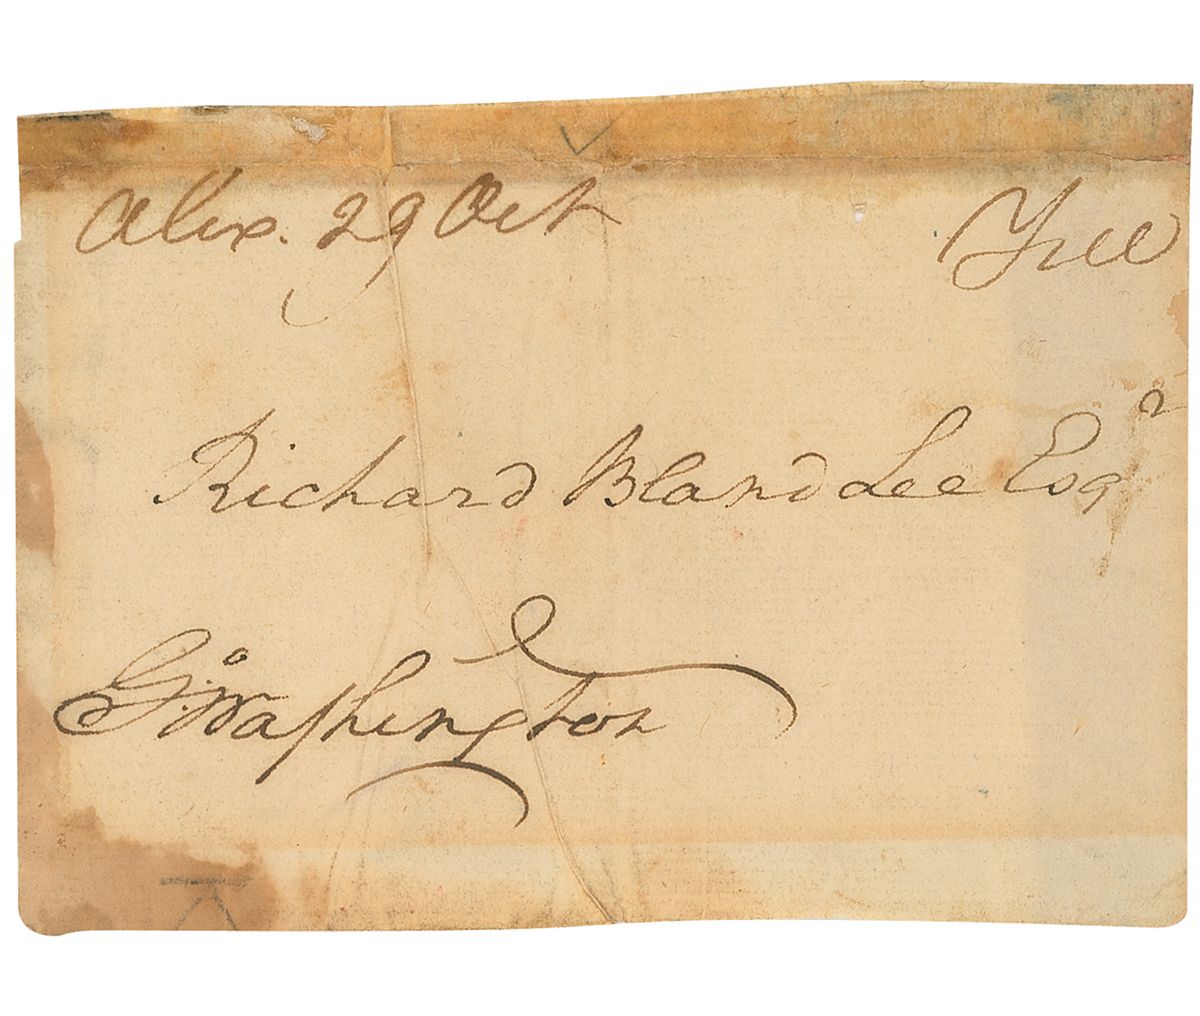 Alex. 29 Oct Free
Richard Bland Lee Esqr
Go: Washington